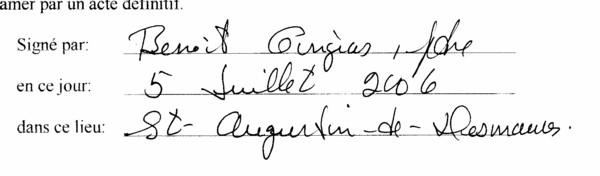 amer par un acte définitif.
Signé par: Benoit , ptre
en ce jour: 5 Juillet 2006
dans ce lieu: St-Augustin-de-Desmaures.